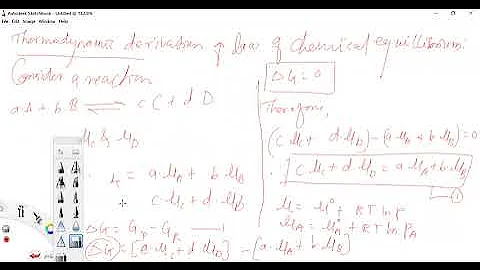 Autodesk SketchBook - Untitled @
File Edit Image Window Help
Thermodynamic derivation of law of chemical equillibrium:
Consider a reaction
aA + bB ⇌ cC + dD
μC & μD
= a.μA + b.μB
c.μC + d.μD
ΔG = GP - GR —— 1
ΔG = [a.μC + d.μD] - (a.μA + b.μB)
ΔG = 0
Therefore,
(c.μC + d.μD) - (a.μA + b.μB) = 0
c.μC + d.μD = a.μA + b.μB
μ = μ° + RT ln P
μA = μ°A + RT ln PA